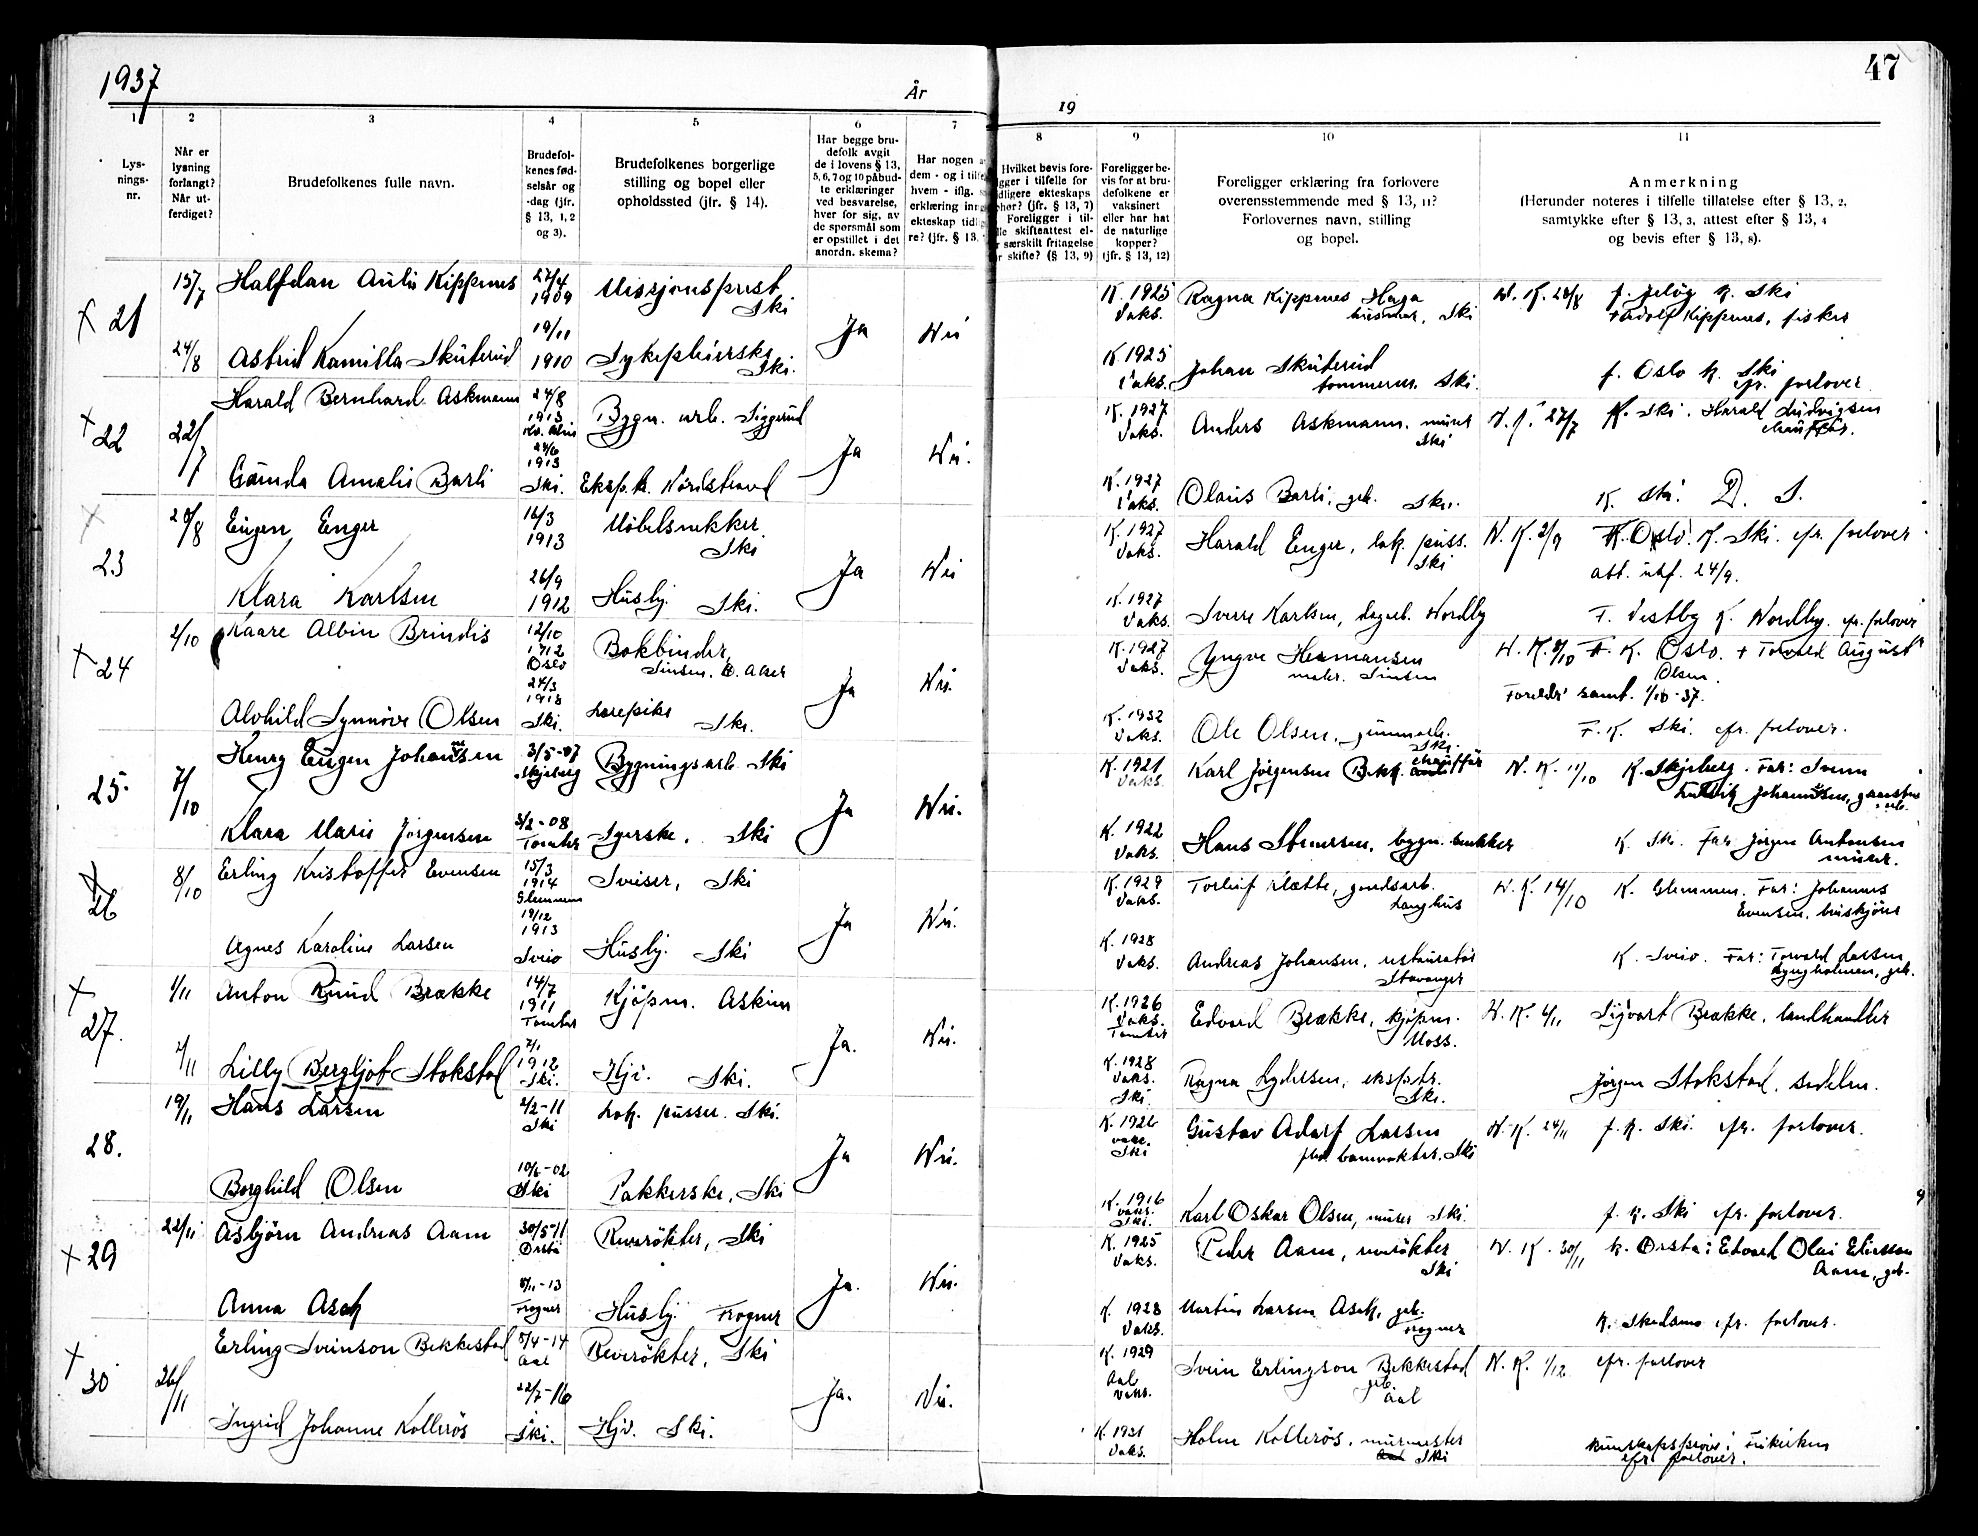 1937
År
19
47
1
2
3
4
5
6
7
8
9
10
11
Lys-
nings-
nr.
Når er
lysning
forlangt?
Når ut-
ferdiget?
Brudefolkenes fulle navn.
Brudefol-
kenes fød-
selsår og
-dag (jfr.
§ 13, 1, 2
og 3).
Brudefolkenes borgerlige
stilling og bopel eller
opholdssted (jfr. § 14).
Har begge bru-
defolk avgit
de i lovens § 13,
5, 6, 7 og 10 påbud-
te erklæringer
ved besvarelse,
hver for sig, av
de spørsmål som
er opstillet i det
anordn. skema?
Har nogen a
dem - og i tilfe
hvem - iflg.
erklæring inng
ekteskap tidli
re? (jfr. § 13,
Hvilket bevis fore-
gger i tilfelle for
dligere ekteskaps
her? (jfr. § 13, 7)
Foreligger i til-
lle skifteattest el-
r særskilt fritagelse
r skifte? (§ 13, 9)
Foreligger be-
vis for at bru-
defolkene er
vaksinert
eller har hat
de naturlige
kopper?
(jfr. § 13, 12)
Foreligger erklæring fra forlovere
overensstemmende med § 13, 11?
Forlovernes navn, stilling
og bopel.
Anmerkning
(Herunder noteres i tilfelle tillatelse efter § 13, 2,
samtykke efter § 13, 3, attest efter § 13, 4
og bevis efter § 13, 8).
x 21
15/7
Halfdan Kippenes
27/4
1909
Misjonsprest
Ski
Ja
Nei
K 1925
Vaks.
Ragna Kippenes Haga
husmor, Ski
N. K. 28/8
f. K. Ski
Adolf Kippenes, fisker
24/8
Astrid Kamilla Skuterud
19/11
1910
Sykepleierske
Ski.
K 1925
Vaks.
Johan Skuterud
tømmerm. Ski.
f. Oslo K. Ski
cfr. forlover
x 22
22/7
Harald Bernhard Askmann
24/8
1913
Bygn. arb. Siggerud
Ja
Nei.
K. 1927
Vaks.
Anders Askmann. murer
Ski
27/7
K. Ski. Harald Ludvigsen
chauffør.
Gunda Amalie Barli
1913
Ski.
Eksp. Nordstrand
K. 1927
Vaks.
Olaus Barli, gb. Ski.
K. Ski. D. S.
x
23
20/8
Eugen Enger
16/3
1913
Møbelsnekker
Ski
Ja
Nei
K. 1927
Vaks.
Harald Enger, lok. puss.
Ski
N. K. 2/9
K. Oslo. K. Ski. cfr. forlover
att. utf. 24/9.
Klara Karlsen
26/9
1912
Husbj. Ski.
K. 1927
Vaks.
Sverre Karlsen, Nordby
F. Vestby K. Nordby. cfr. forlover
x 24
2/10
Kaare Albin Brindis
12/10
1912
Oslo
Bokbinder,
Sinsen, Ø. Aker
Ja
Nei.
K. 1927
Vaks.
Yngve Hermansen
maler. Sinsen
N. K. 8/10 F. K. Oslo. + Torvald August
Olsen.
Foreldr' samt. 1/10-37.
Alvhild Synnöve Olsen
24/3
1918
Ski.
Ski.
K. 1932
Vaks.
Ole Olsen,
Ski.
F. K. Ski. cfr. forlover.
25.
7/10
Henry Eugen Johansen
3/5-07
Skjeberg
Bygningsarb. Ski
Ja
Nei.
K. 1921
Vaks.
Karl Jørgensen Bekk.
chauffør
N. K. 11/10
K. Skjeberg. Far: Svenn
Klara Marie Jørgensen
3/2-08
Tomter
Syerske. Ski
K. 1922
Vaks.
Hans Steenersen, bygn. snekker
K. Ski. Far Jørgen Antonsen
murer.
x
26
8/10
Erling Kristoffer Evensen
15/3
1914
Glemmen
Sveiser, Ski
Ja
Nei.
K. 1929
Vaks.
Torleif Slette, gaardsarb.
Langhus
N. K. 14/10
K. Glemmen. Far: Johannes
Evensen,
Agnes Karoline Larsen
19/12
1913
Sveio
Husbj. Ski
K. 1928
Vaks.
Andreas Johansen, restauratør
Stavanger
K. Sveio. Far: Torvald Larsen
Lyngholmen, gb.
x
27.
1/11
Anton Knud Brække
14/7
1911
Tomter
Kjöpm. Askim
Ja.
Nei.
K. 1926
Vaks.
Tomter
Edvard Brække, kjöpm.
Moss.
N. K. 4/11
Sigvart Brække, landhandler
4/11
Lilly Bergljot Stokstad
7/1
1912
Ski.
Hjv. Ski.
K. 1928
Vaks.
Ski.
Ragna Lydersen,
Ski.
Jørgen Stokstad,
28.
19/11
Hans Larsen
2/2-11
Ski
Lok. pusser. Ski.
Ja
Nei.
K. 1926
vaks.
Ski
Gustav Adolf Larsen
banevokter. Ski
N. K. 24/11
f. K. Ski. cfr. forlover.
Borghild Olsen
10/6-02
Ski
Pakkerske, Ski
K. 1916
vaks.
Ski.
Karl Oskar Olsen, murer Ski.
f. K. Ski cfr. forlover.
x 29
22/11
Asbjörn Andreas Aam
30/5-11
Ørsta
Reverökter, Ski
Ja.
Nei.
K. 1925
Vaks.
Peder Aam, reverökter
Ski
N. K. 30/11
K. Ørsta: Edvard Olai Eliassen
Aam, gb.
Anna Asak
8/11-13
Frogner
Husbj. Frogner
K. 1928
Vaks.
Martin Larsen Asak, gb.
Frogner
K. Skedsmo cfr. forlover.
x
30
26/11
Erling Sveinson Bekkestad
5/4-14
Aal
Reverökter, Ski
Ja.
Nei.
K. 1929
Aal
Vaks.
Svein Erlingson Bekkestad
gb.
Aal
N. K. 1/12
cfr. forlover
Ingrid Johanne Kollerös
22/7-16
Ski.
Hjv. Ski.
K. 1931
Vaks.
Holm Kollerös. murmester
Ski
Kunskapsprøve i Frikirken
cfr forlover.